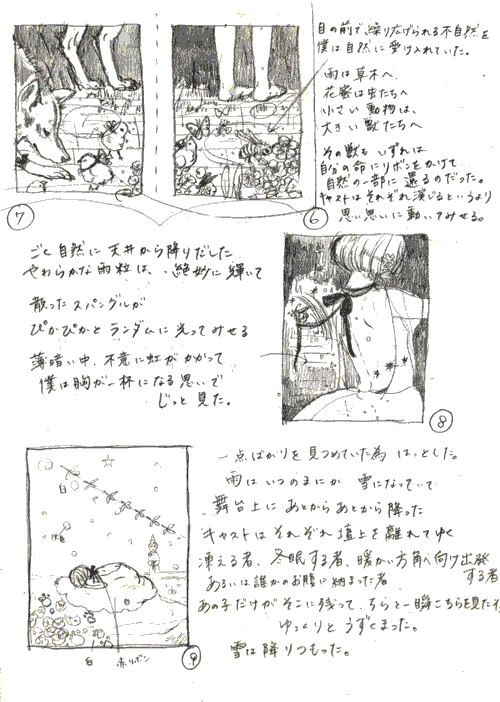 目の前で、繰り広げられる不自然を
僕は自然に受け入れていた。
雨は草木へ
花蜜は虫たちへ
小さい動物は、
大きい獣たちへ
その獣もいずれは
自分の命にリボンをかけて
自然の一部に還るのだった。
キャストはそれぞれ演じるというより
思い思いに動いてみせる。
⑦
⑥
ごく自然に天井から降りだした
やわらかな雨粒は、絶妙に輝いて
散ったスパングルが
ぴかぴかとランダムに光ってみせる
薄暗い中、不意に虹がかかって
僕は胸が一杯になる思いで
じっと見た。
⑧
一点ばかりを見つめていた為 はっとした。
雨はいつのまにか 雪になっていて
舞台上に あとからあとから降った
キャストはそれぞれ壇上を離れてゆく
凍える者、冬眠する者、暖かい方角へ向け出発
する者
あるいは誰かのお腹に納まった者
あの子だけがそこに残って、ちらと一瞬こちらを見た
ゆっくりと うずくまった。
雪は降りつもった。
白
白
赤リボン
⑨